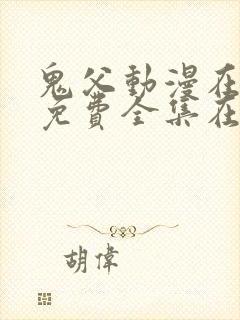 鬼父動漫在
免費全集在
胡偉